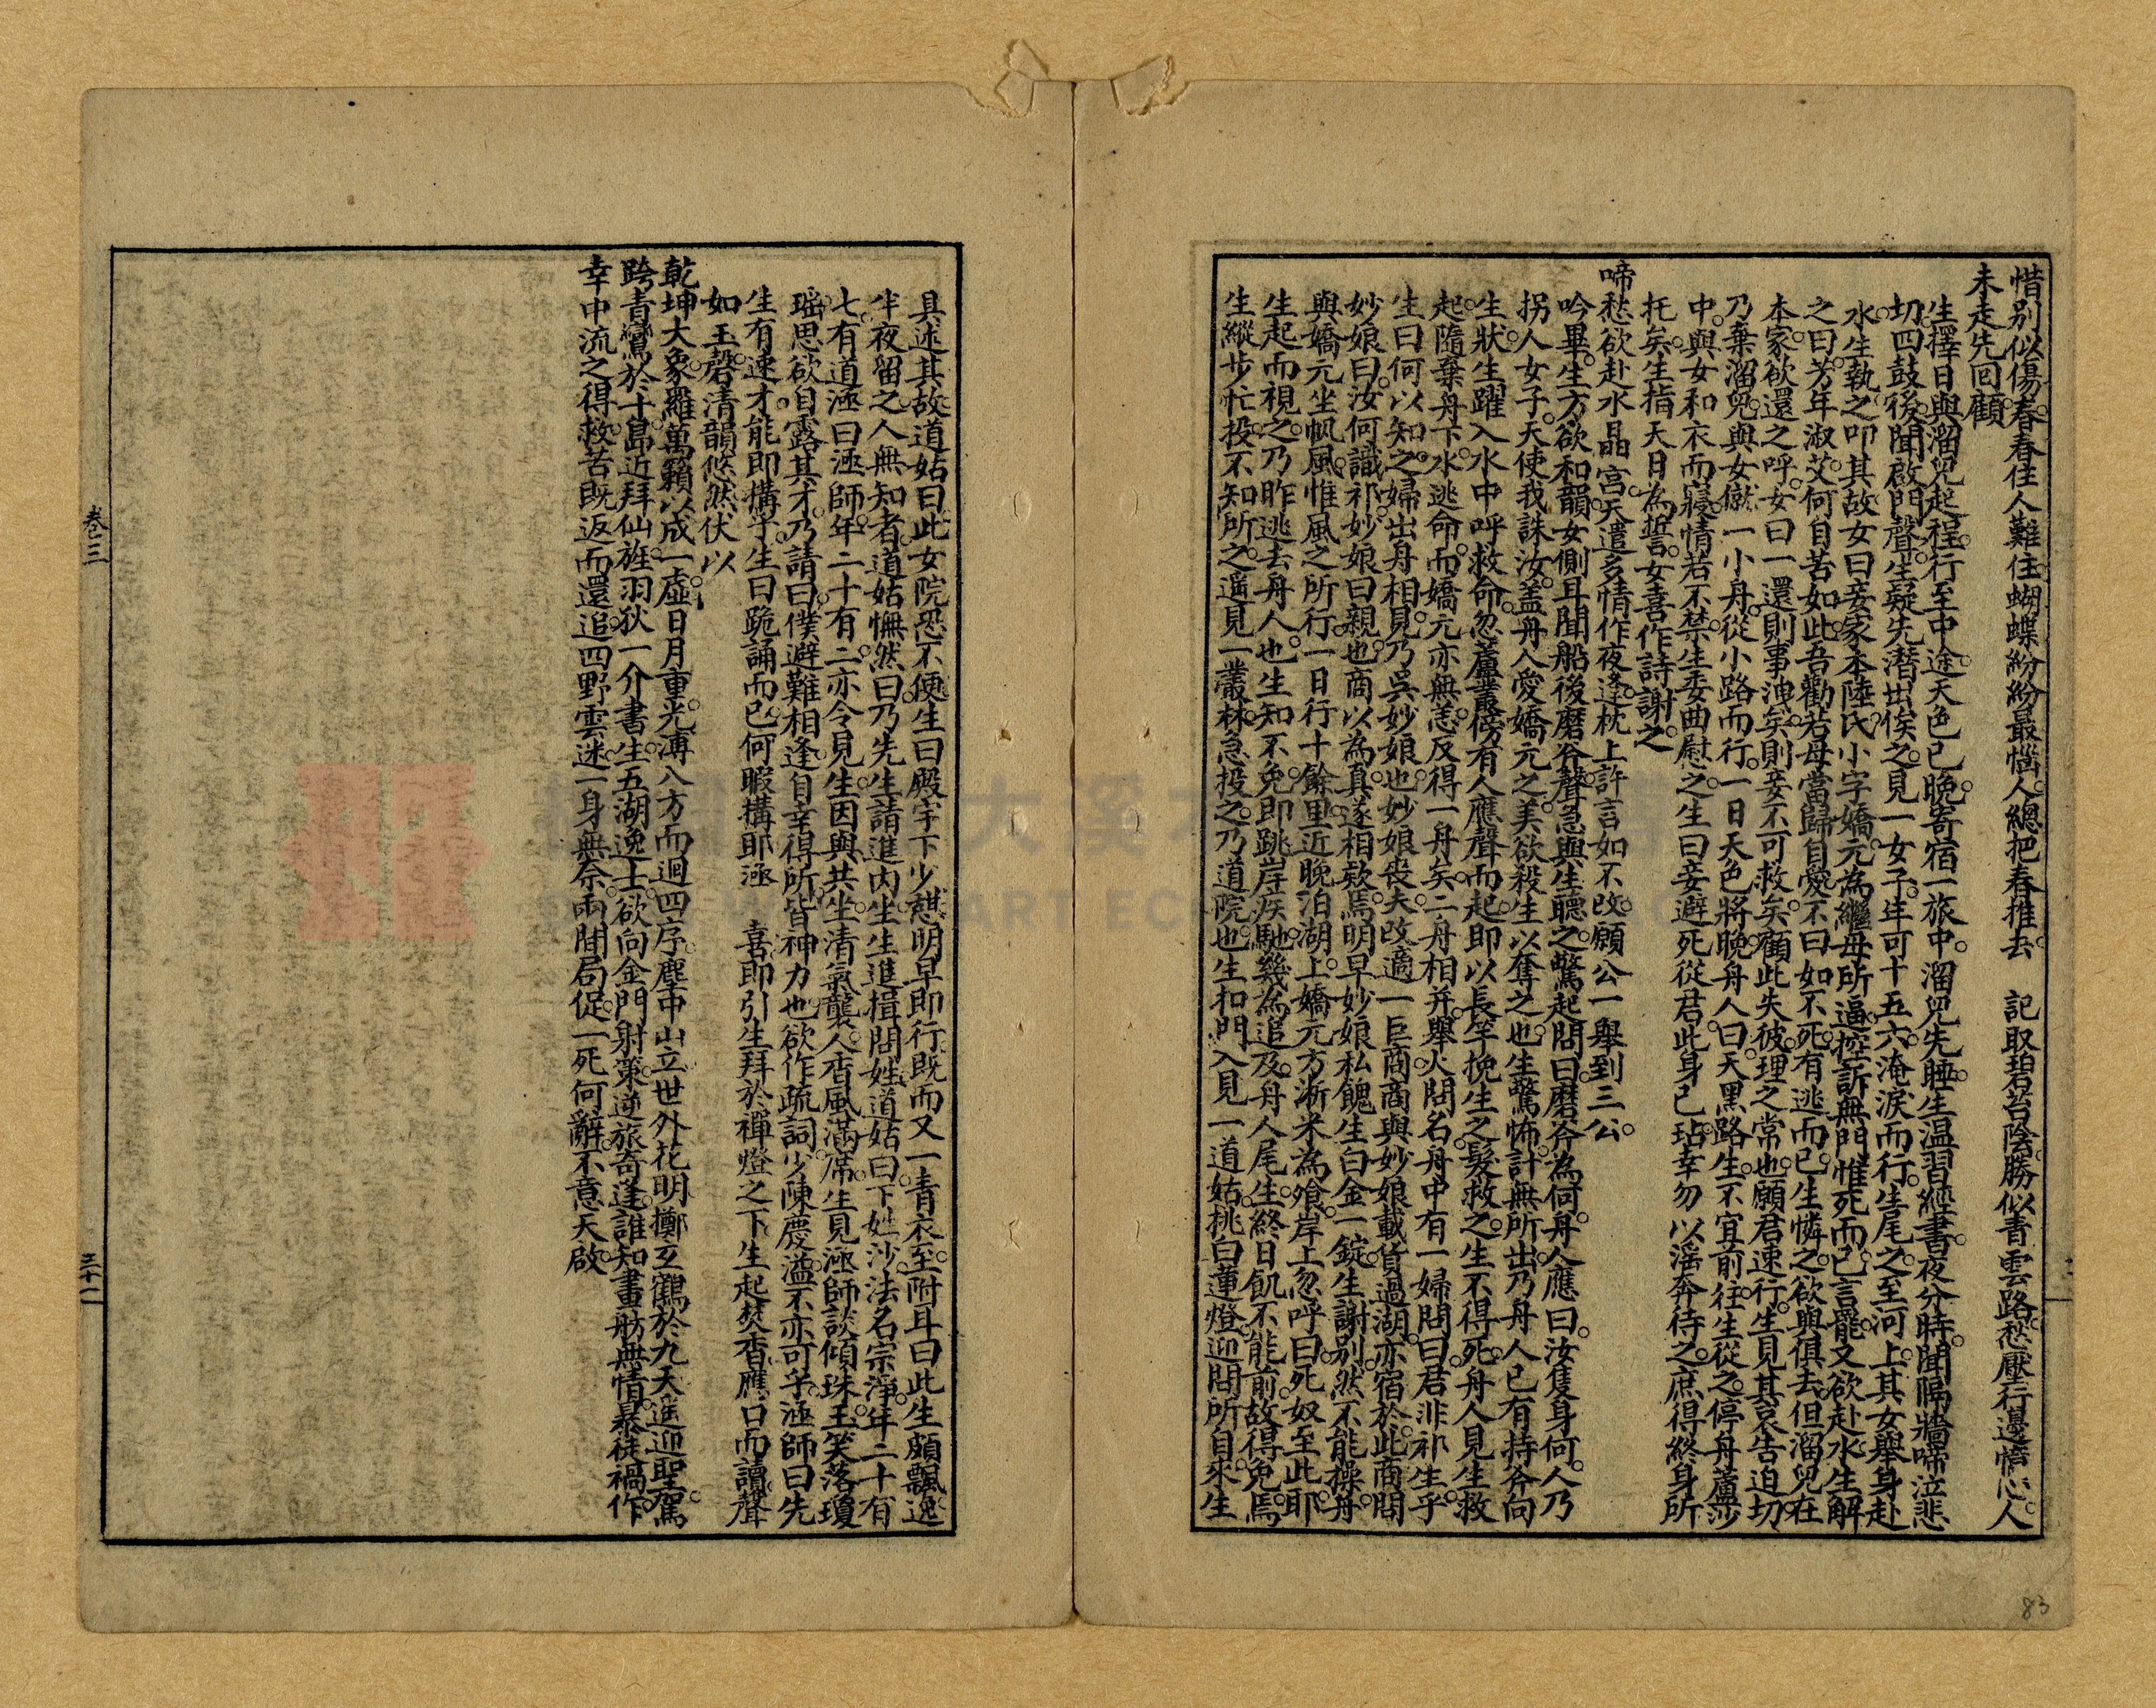 惜別似傷春。春住人難住。蝴蝶紛紛最惱人。總把春推去　記取碧苔陰。勝似青雲路。愁壓行邊憒心。人
未走先回顧
生擇日與溜兒起程。行至中途。天色已晚。寄宿一旅中。溜兒先睡。生温習經書。夜分時。聞隔牆啼泣悲
切。四鼓後。聞啟門聲。生疑。先潛出俟之。見一女子。年可十五六。淹淚而行。生尾之。至河上。其女舉身赴
水。生執之。叩其故。女曰。妾家本陸氏。小字嬌元。為繼母所逼。控訴無門。惟死而已。言罷。又欲赴水。生解
之曰。芳年淑艾。何自苦如此。吾勸若母當歸自愛。不曰。如不死。有逃而已。生憐之。欲與俱去。但溜兒在
本家。欲還之呼。女曰。一還則事洩矣。則妾不可救矣。顧此失彼。理之常也。願君速行。生見其哀告迫切
乃棄溜兒。與女儎一小舟。從小路而行。一日。天色將晚。舟人曰。天黑路生。不宜前往。生從之。停舟蘆沙
中。與女和衣而寢。情若不禁。生委曲慰之。生曰。妾避死從君。此身已玷。幸勿以淫奔待之。庶得終身所
托矣。生指天日為誓。女喜。作詩謝之
啼愁欲赴水晶宮。天遣多情作夜逢。枕上許言如不改。願公一舉到三公。
吟畢。生方欲和韻。女側耳聞船後磨斧聲急。與生聽之。驚起。問曰。磨斧為何。舟人應曰。汝隻身何人。乃
拐人女子。天使我誅汝。盖舟人愛嬌元之美。欲殺生以奪之也。生驚怖。計無所出。乃舟人已有持斧向
生狀。生躍入水中呼救命。忽蘆叢傍有人應聲而起。即以長竿挽生之髮救之。生不得死。舟人見生救
起。隨棄舟下水逃命。而嬌元亦無恙。反得一舟矣。二舟相并。舉火問名。舟中有一婦問曰。君非祁生乎
生曰。何以知之。婦出舟相見。乃吳妙娘也。妙娘喪夫。改適一巨商。商與妙娘載貨過湖。亦宿於此。商問
妙娘曰。汝何識祁。妙娘曰。親也。商以為真。遂相欵焉。明早。妙娘私餽生白金一錠。生謝別。然不能操舟
與嬌元坐帆風。惟風之所行。一日行十餘里。近晚泊湖上。嬌元方淅米為飧。岸上忽呼曰。死奴至此耶
生起而視之。乃昨逃去舟人也。生知不免。即跳岸疾馳。幾為追及。舟人尾生終日。飢不能前。故得免焉
生縱步忙投。不知所之。遥見一叢林。急投之。乃道院也。生扣門入。見一道姑。挑白蓮燈迎問所自來。生
具述其故。道姑曰。此女院。恐不便。生曰。殿宇下少憇。明早即行。既而又一青衣至。附耳曰。此生頗飄逸
半夜留之。人無知者。道姑憮然曰。乃先生請進內坐。生進揖問姓。道姑曰。下姓沙。法名宗淨。年二十有
七。有道涵曰涵師。年二十有二。亦令見生。因與共坐。清氣襲人。香風滿席。生見涵師談傾珠玉。笑落瓊
瑶。思欲自露其才。乃請曰。僕避難相逢。自幸得所。皆神力也。欲作疏詞。少陳慶溢。不亦可乎。涵師曰。先
生有速才。能即構乎。生曰。跪誦而已。何暇構耶。涵　喜。即引生拜於禪燈之下。生起焚香。應口而讀。聲
如玉磬。清韻悠然。伏以
乾坤大象。羅萬籟以成一虛。日月重光。溥八方而迴四序。塵中山立。世外花明。擲玄鶴於九天。遥迎聖駕。
跨青鸞於十島。近拜仙旌。羽狄一介書生。五湖逸士。欲向金門射策。逆旅奇逢。誰知畫舫無情。暴徒禍作
幸中流之得救。苦既返而還追。四野雲迷。一身無奈。雨間局促。一死何辭。不意天啟
卷三
三十二
83